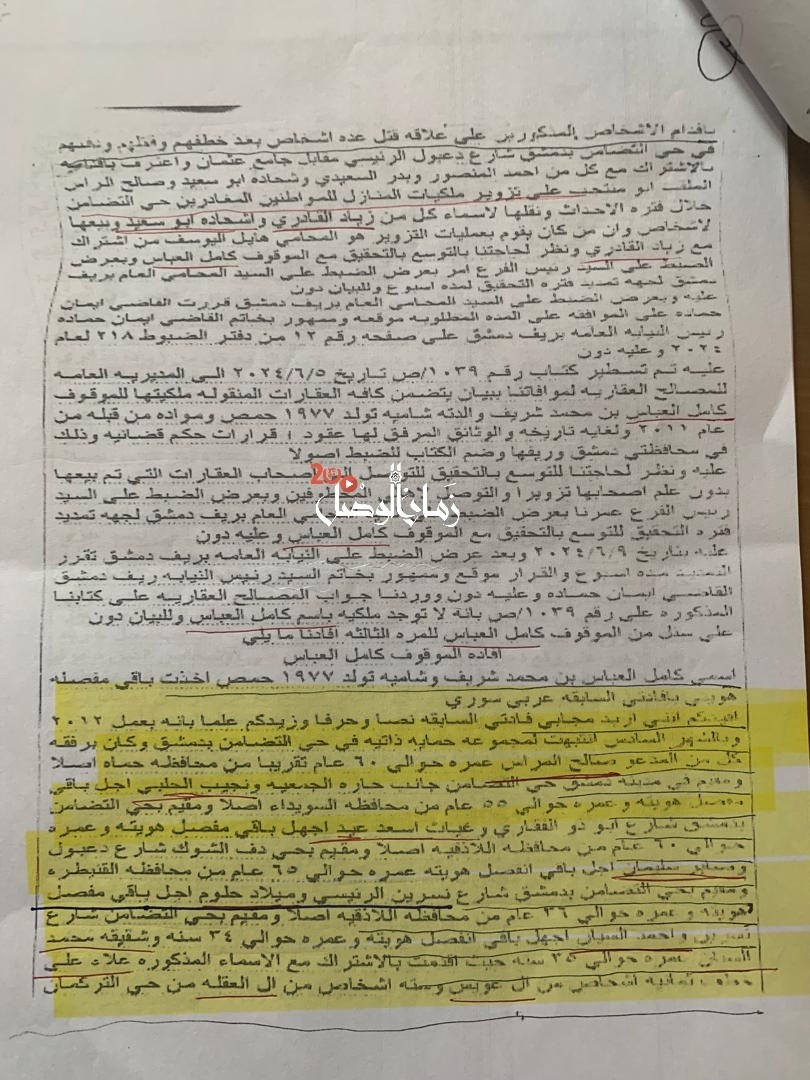 باقدام الاشخاص المذكورين على علاقه قتل عده اشخاص بعد خطفهم وقتلهم ونقلهم
في حي التضامن بدمشق شارع دعبول الرئيسي مقابل جامع عثمان واعترف باقدامه
بالاشتراك مع كل من احمد المنصور وبدر السعيدي وشحاده ابو سعيد وصالح الراس
الملقب ابو منتجب على تزوير ملكيات المنازل للمواطنين المغادرين حي التضامن
خلال فتره الاحداث ونقلها لاسماء كل من زياد القادري واشحاده ابو سعيد وبيعها
لاشخاص وان من كان يقوم بعمليات التزوير هو المحامي هايل اليوسف من اشتراك
مع زياد القادري ونظر لحاجتنا بالتوسع بالتحقيق مع الموقوف كامل العباس وبعرض
الضبط على السيد رئيس الفرع امر بعرض الضبط على السيد المحامي العام بريف
دمشق لجهه تمديد فتره التحقيق لمده اسبوع وللبيان دون
عليه وبعرض الضبط على السيد المحامي العام بريف دمشق قررت القاضي ايمان
حماده على الموافقه على المده المطلوبه موقعه وممهور بخاتم القاضي ايمان حماده
رئيس النيابه العامه بريف دمشق على صفحه رقم ١٢ من دفتر الضبوط ٢١٨ لعام
٢٠٢٤ وعليه دون
عليه تم تسطير كتاب رقم ١٠٣٩/ص تاريخ ٢٠٢٤/٦/٥ الى المديريه العامه
للمصالح العقاريه لموافاتنا ببيان يتضمن كافه العقارات المنقوله ملكيتها للموقوف
كامل العباس بن محمد شريف والدته شاميه تولد ١٩٧٧ حمص ومواده من قبله من
عام ٢٠١١ ولغايه تاريخه والوثائق المرفق لها عقود / قرارات حكم قضائيه وذلك
في محافظتي دمشق وريفها وضم الكتاب للضبط اصولا
عليه ونظر لحاجتنا للتوسع بالتحقيق للتوصل اصحاب العقارات التي تم بيعها
بدون علم اصحابها تزويرا والتوصل المخطوفين وبعرض الضبط على السيد
رئيس الفرع عمرنا بعرض الضبط العام بريف دمشق لجهه تمديد
فتره التحقيق للتوسع بالتحقيق مع الموقوف كامل العباس وعليه دون
عليه بتاريخ ٢٠٢٤/٦/٩ وبعد عرض الضبط على النيابه العامه بريف دمشق تقرر
التمديد مده اسبوع والقرار موقع وممهور بخاتم السيد رئيس النيابه ريف دمشق
القاضي ايمان حماده وعليه دون ووردنا جواب المصالح العقاريه على كتابنا
المذكوره على رقم ١٠٣٩/ص بانه لا توجد ملكيه باسم كامل العباس وللبيان دون
على سئل من الموقوف كامل العباس للمره الثالثه افادنا ما يلي
افاده الموقوف كامل العباس
اسمي كامل العباس بن محمد شريف وشاميه تولد ١٩٧٧ حمص اخذت باقي مفصله
هويتي بافادتي السابقه عربي سوري
افيدكم انني اريد مجابي فادتي السابقه نصا وحرفا وزيدكم علما بانه بعمل ٢٠١٢
وبالشهر السادس انتبهت لمجموعه حمايه ذاتيه في حي التضامن بدمشق وكان برفقه
كل من المدعو صالح الراس عمره حوالي ٦٠ عام تقريبا من محافظه حماه اصلا
ومقيم في مدينه دمشق حي التضامن جانب حاره الجمعيه ونجيب الحلبي اجل باقي
مفصل هويته وعمره حوالي ٥٥ عام من محافظه السويداء اصلا ومقيم بحي التضامن
بدمشق شارع ابو ذو الفقاري وغياث اسعد عيد اجهل باقي مفصل هويته وعمره
حوالي ٦٠ عام من محافظه اللاذقيه اصلا ومقيم بحي دف الشوك شارع دعبول
وصابر سليمان اجل باقي انفصل هويته عمره حوالي ٦٥ عام من محافظه القنيطره
ومقيم بحي التضامن بدمشق شارع نسرين الرئيسي وميلاد حلوم اجل باقي مفصل
هويته وعمره حوالي ٣٦ عام من محافظه اللاذقيه اصلا ومقيم بحي التضامن شارع
نسرين واحمد اجهل باقي انفصل هويته وعمره حوالي ٣٤ سنه وشقيقه محمد
عمره حوالي ٣٥ سنه حيث اقدمت بالاشتراك مع الاسماء المذكوره علاء على
ثمانيه اشخاص من ال عويس وسته اشخاص من ال العقله من حي التركمان
زمان الوصل